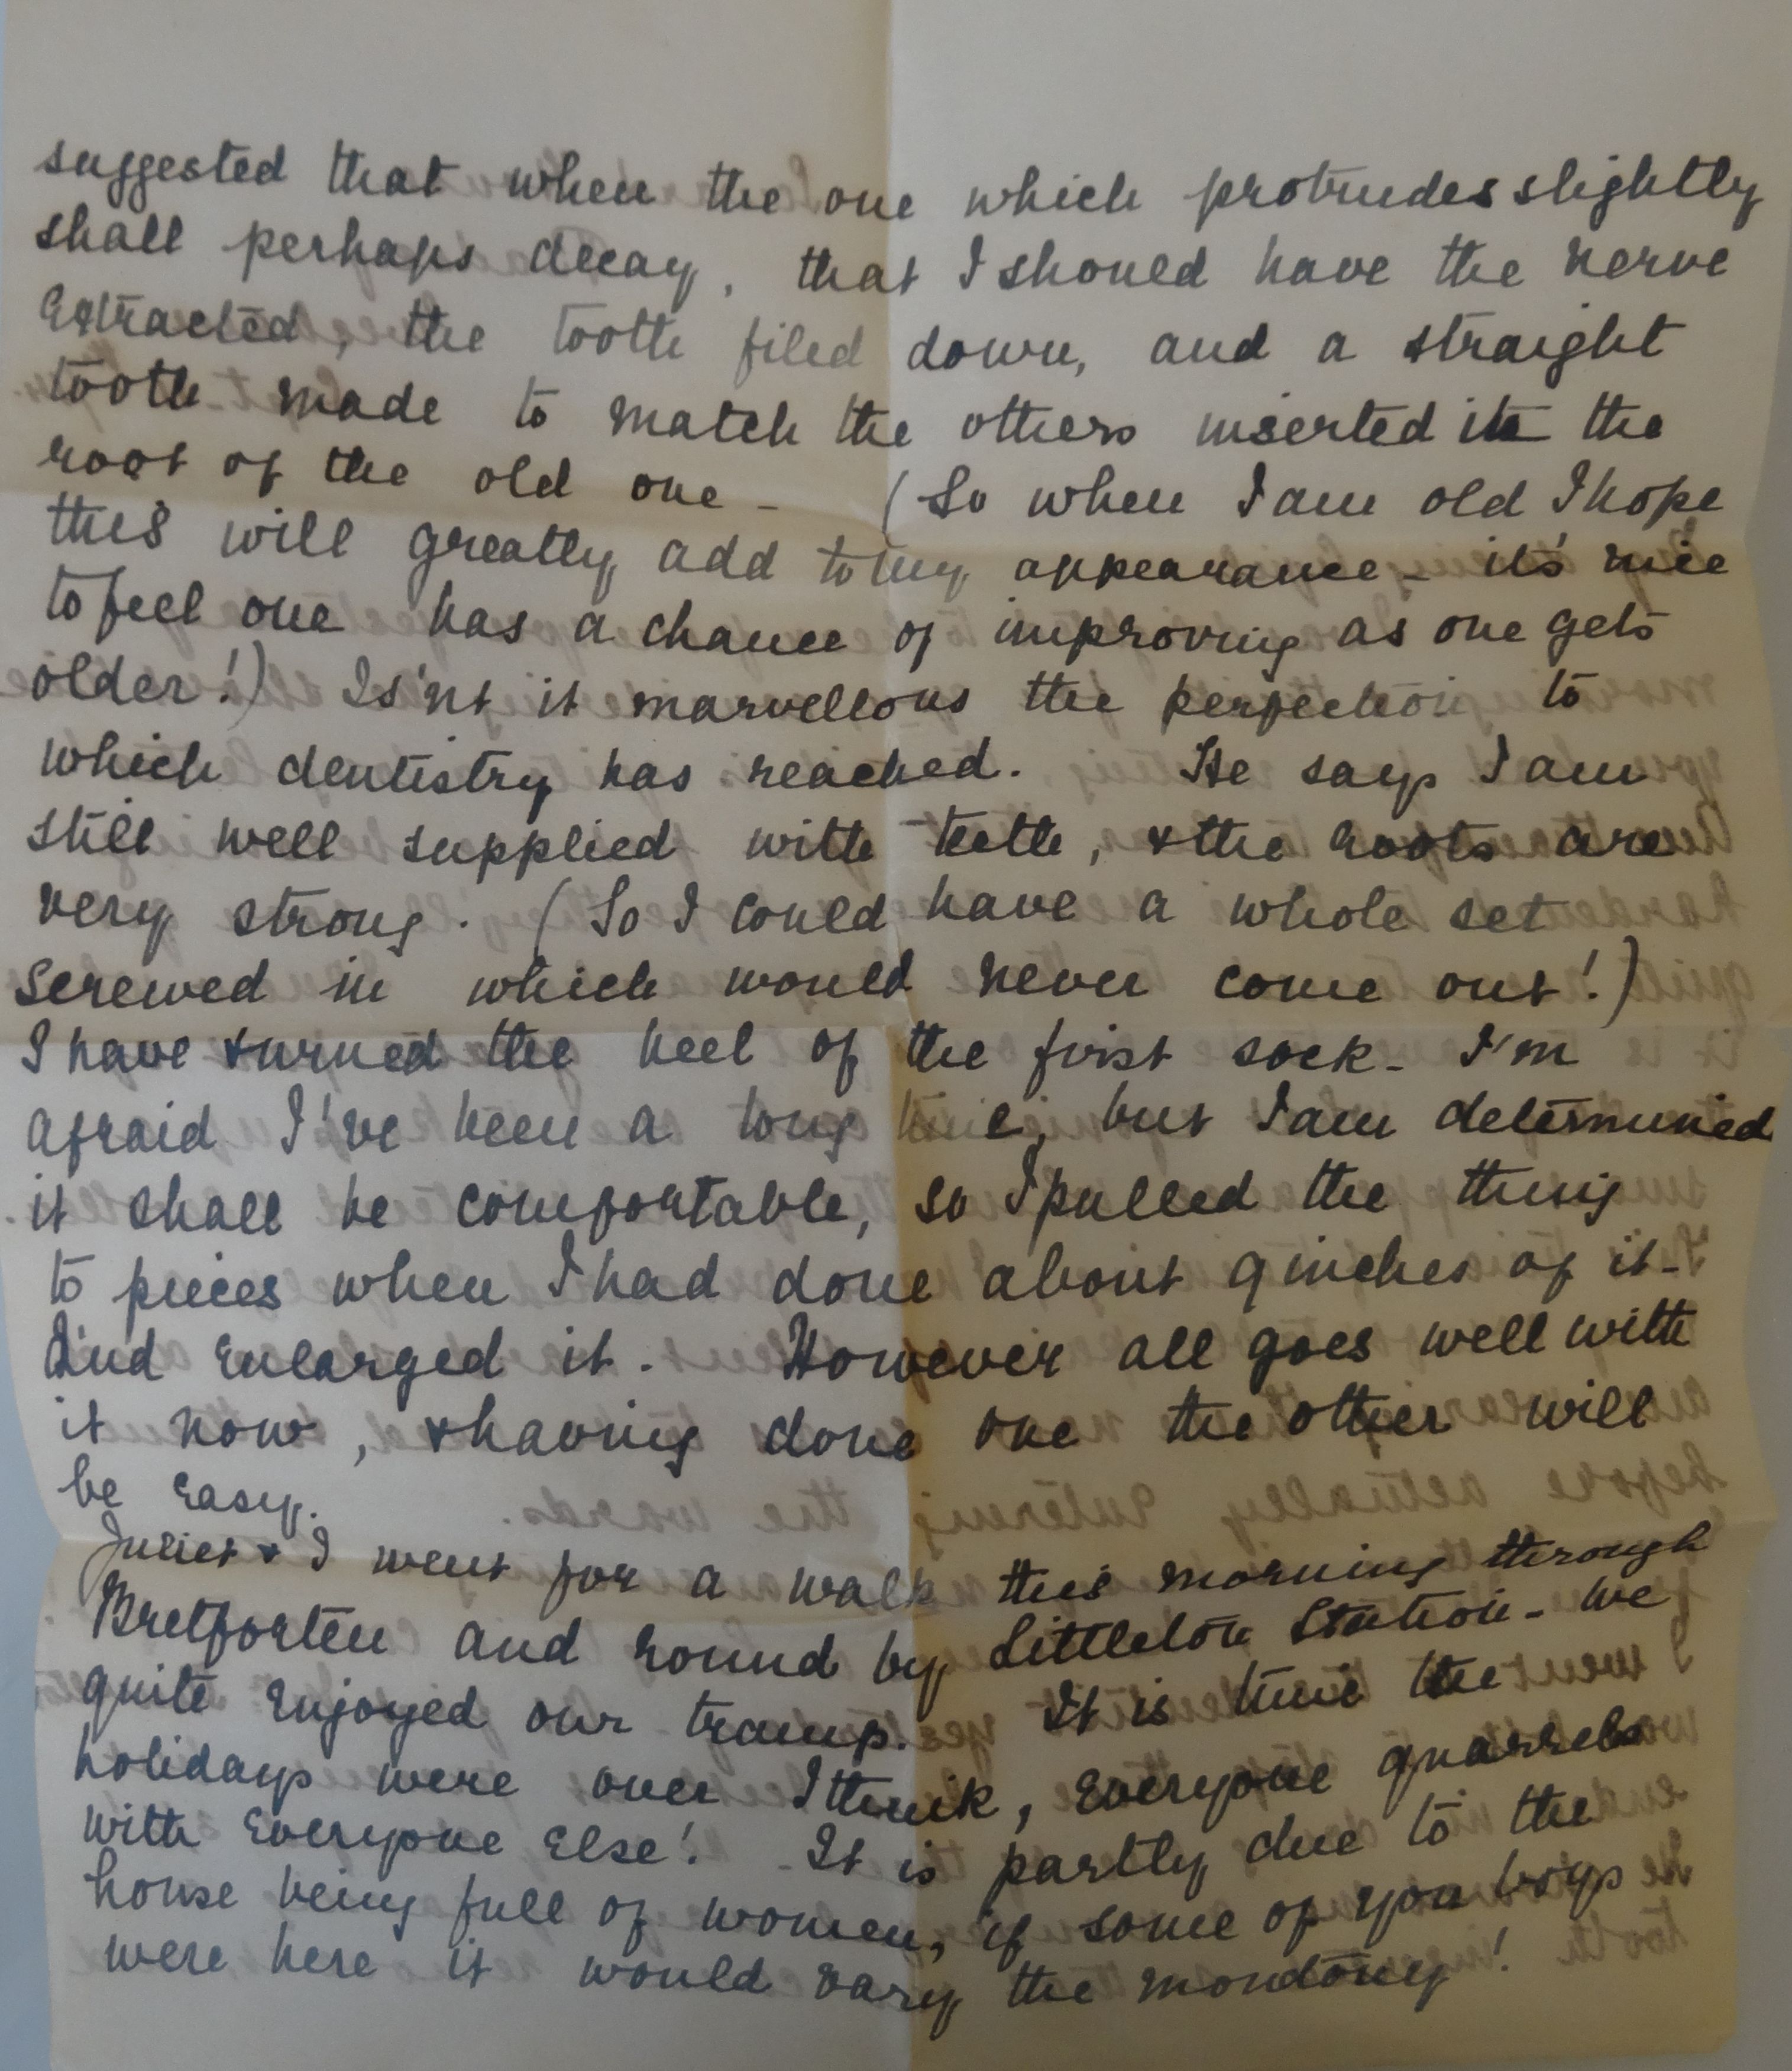 suggested that when the one which protrudes slightly
shall perhaps decay, that I should have the nerve
Extracted, the tooth filed down, and a straight
tooth made to match the others inserted in the
root of the old one - (So when I am old I hope
this will greatly add to my appearance - it's nice
to feel one has a chance of improving as one gets
older!) Is'nt it marvellous the perfection to
which dentistry has reached. He says I am
still well supplied with teeth, & the roots are
very strong. (So I could have a whole set
screwed in which would never come out!)
I have turned the heel of the first sock - I'm
afraid I've been a long time, but I am determined
it shall be comfortable, so I pulled the thing
to pieces when I had done about 9 inches of it -
And Enlarged it. However all goes well with
it now, & having done one the other will
be Easy.
Juliet & I went for a walk this morning through
Bretforten and round by Littleton Station - We
quite Enjoyed our tramp. It is time the
holidays were over I think, Everyone quarrels
with Everyone Else! It is partly due to the
house being full of women, if some of you boys
were here it would vary the monotony!